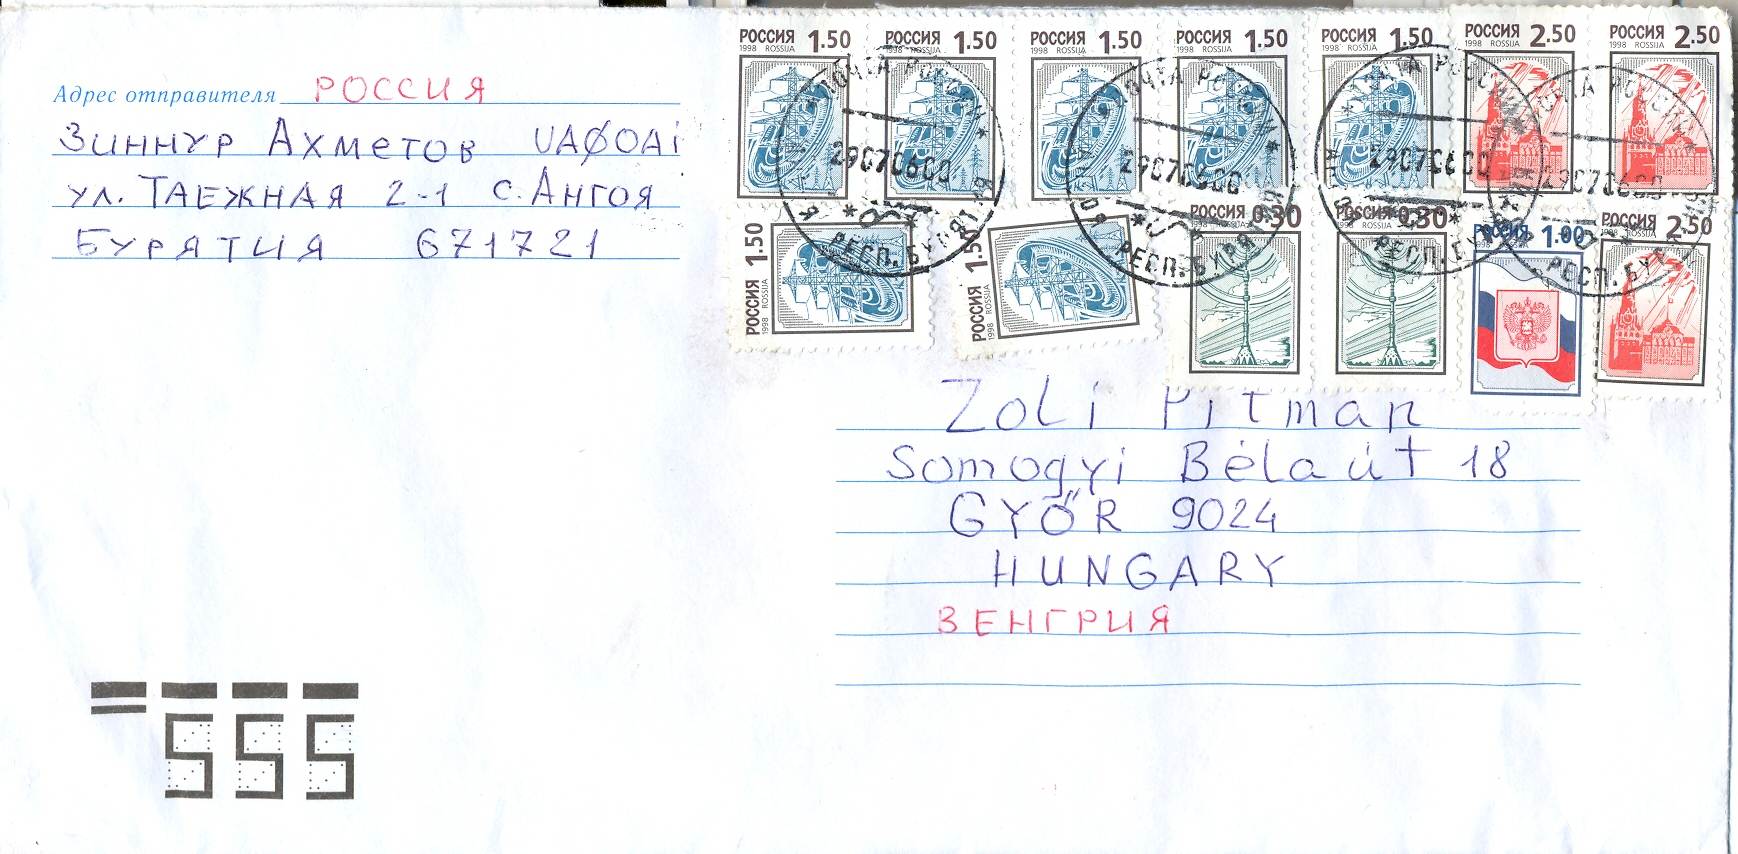 РОССИЯ 1.50 РОССИЯ 1.50 РОССИЯ 1.50 РОССИЯ 1.50 РОССИЯ 1.50 РОССИЯ 2.50 РОССИЯ 2.50
1998 ROSSIJA 1998 ROSSIJA 1998 ROSSIJA 1998 ROSSIJA 1998 ROSSIJA 1998 ROSSIJA 1998 ROSSIJA
Адрес отправителя РОССИЯ
Зиннур Ахметов UAØOAI
ул. ТАЕЖНАЯ 2-1 с. Ангоя
БУРЯТИЯ 671721
ПОЧТА РОССИИ
РЕСП. БУРЯТИЯ
РОССИЯ 1.50
1998 ROSSIJA
РОССИЯ 1.50
1998 ROSSIJA
РОССИЯ 0.30
1998 ROSSIJA
РОССИЯ 0.30
1998 ROSSIJA
РОССИЯ 1.00
РОССИЯ 2.50
1998 ROSSIJA
Zoli Pitman
Somogyi Béla út 18
GYŐR 9024
HUNGARY
ВЕНГРИЯ
555